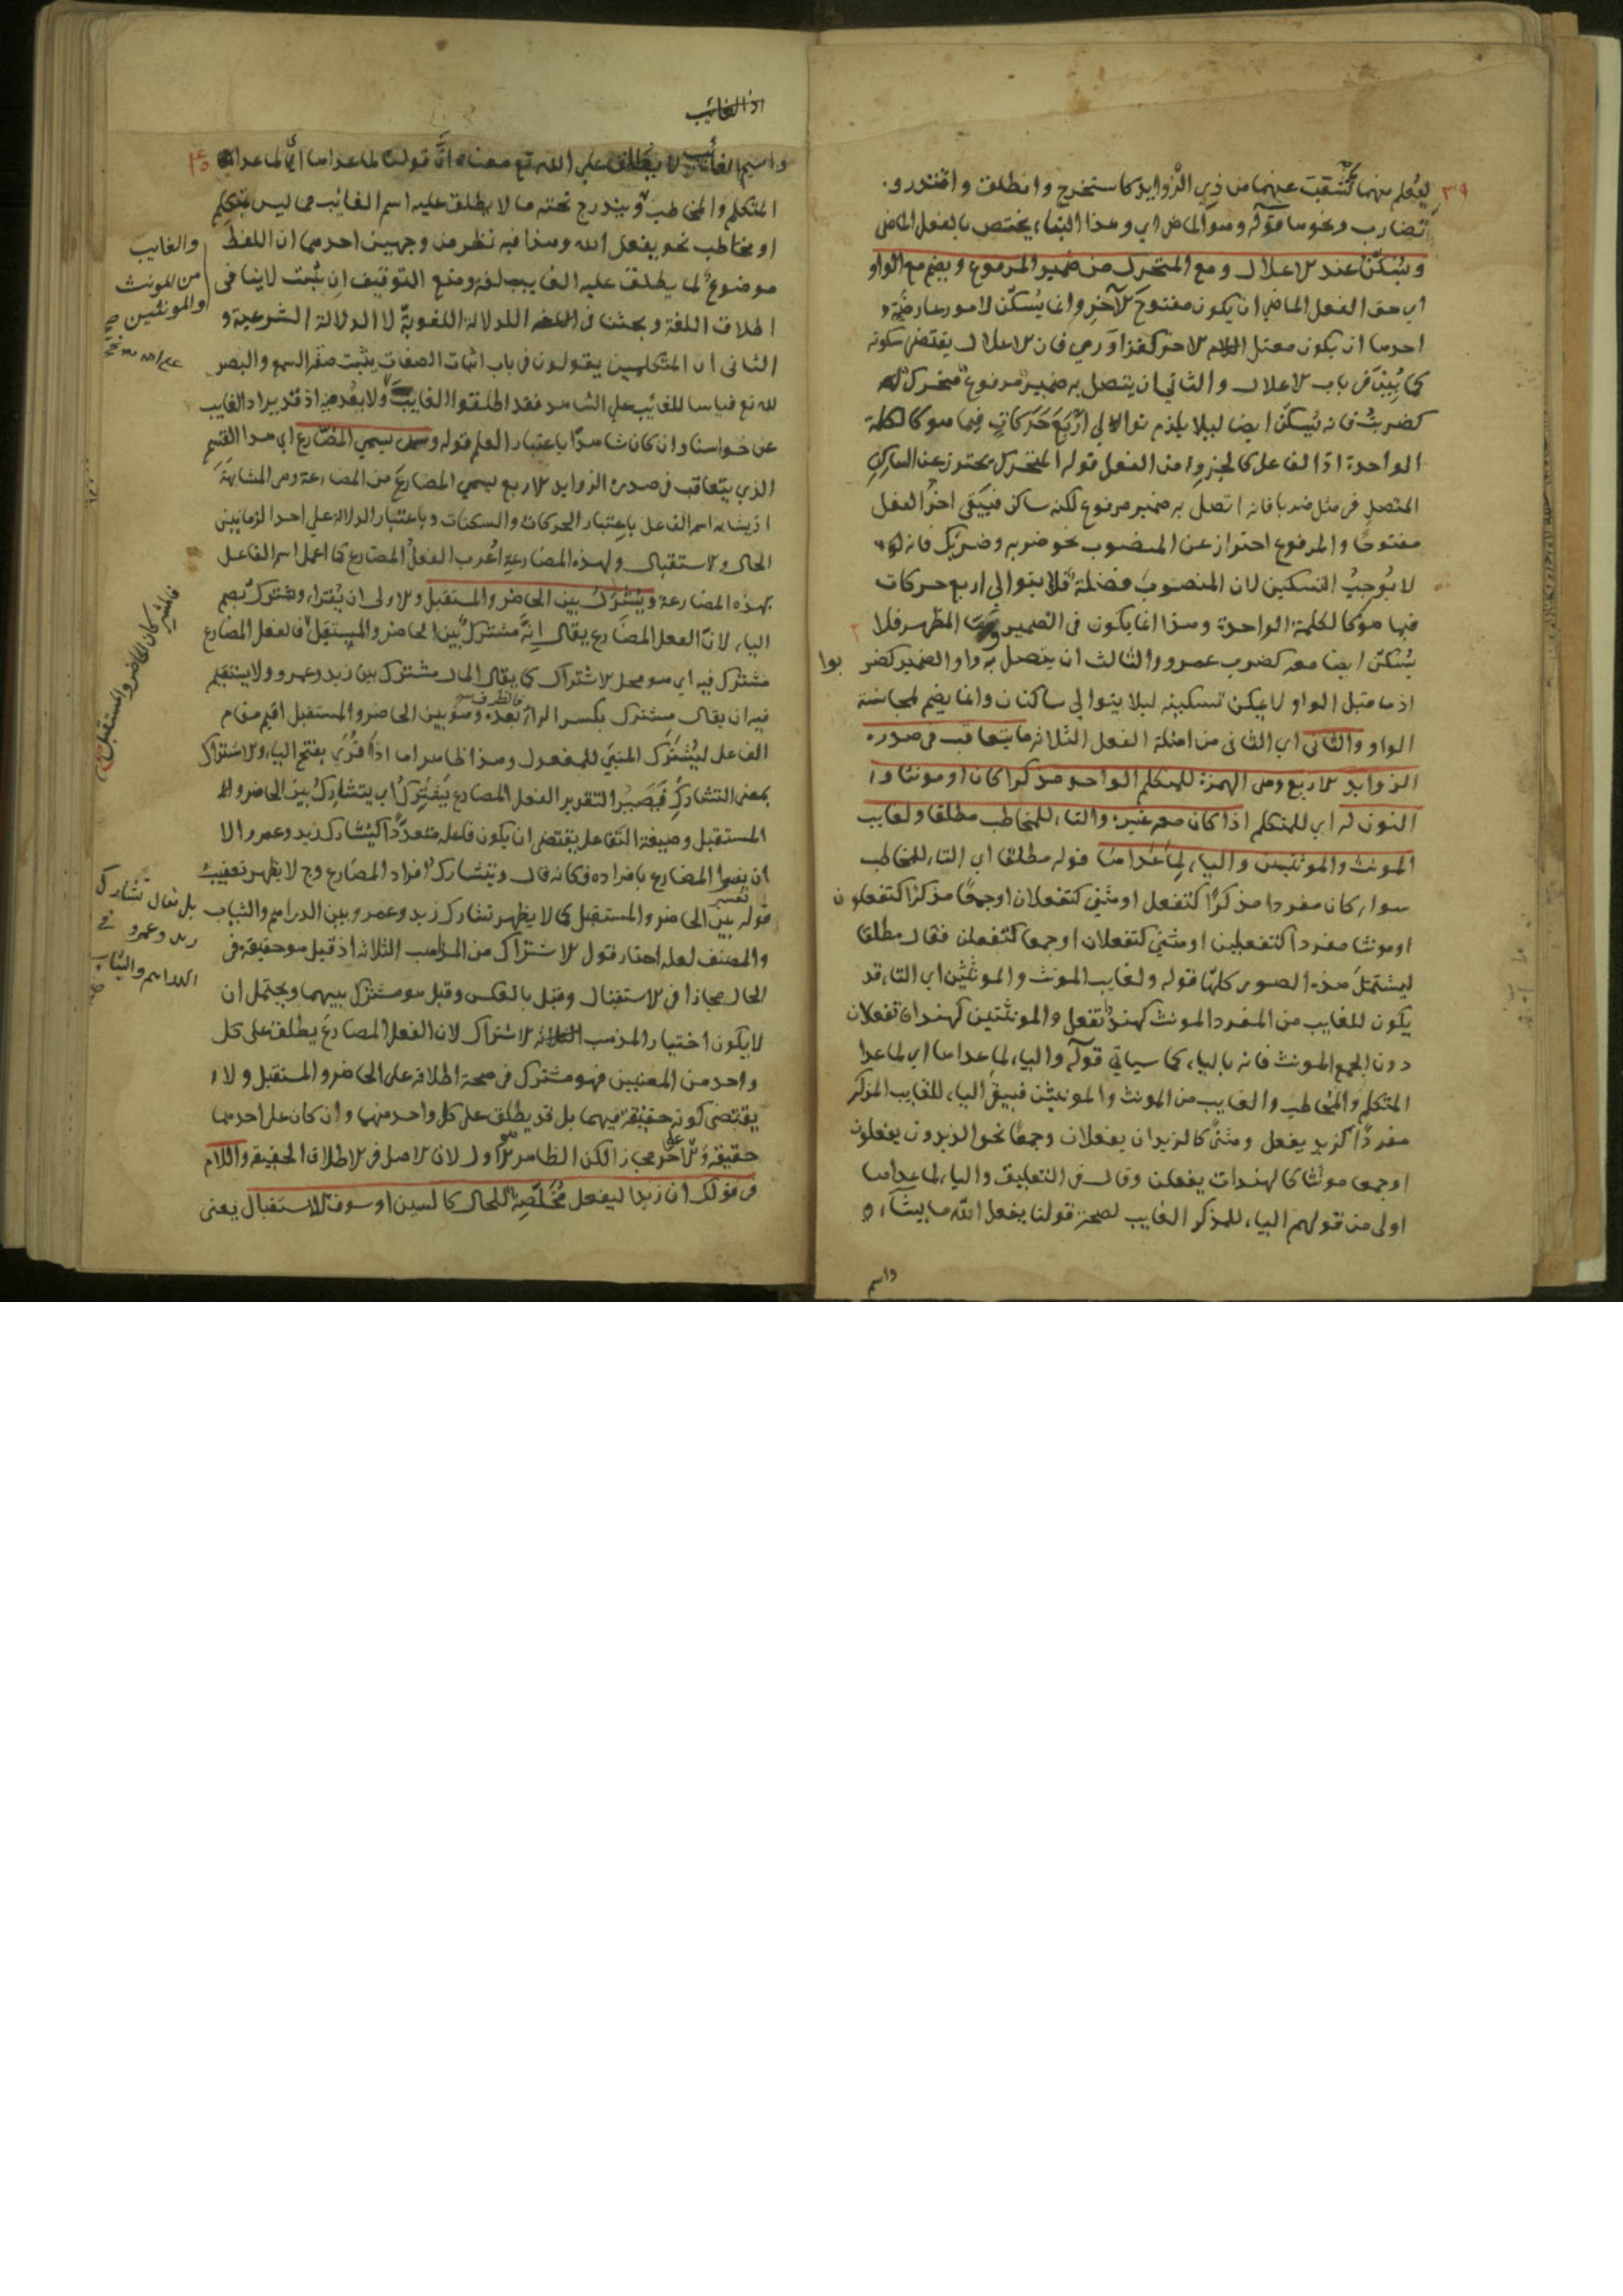 ٣٩
ليعلم منهما ما تشعب عنهما من ذي الزوايد كاستخرج وانطلق واقتدر و
تضارب ونحوها قوله وهو الماضي اي وهذا البناء يختص بالفعل الماضي
ويُسَكَّن عند الاعلال ومع المتحرك من ضمير المرفوع ويضم مع الواو
اي حق الفعل الماضي ان يكون مفتوح الآخر وانما يُسكّن لامور عارضية
احدها ان يكون معتل اللام الاخر كغزا ورمى فان الاعلال يقتضي سكونه
كما يُبيّن في باب الاعلال والثاني ان يتصل به ضمير مرفوع متحرك
كضربتُ فانه يُسكّن ايضا ليلا يلزم توالي اَرْبَعَ حَرَكاتٍ فيما هو كالكلمة
الواحدة اذ الفاعل كالجزء من الفعل قوله المتحرك يحترز عن الساكن
المتصل في مثل ضربا فانه اتصل به ضمير مرفوع لكنه ساكن فيبقى اخر الفعل
مفتوحًا والمرفوع احتراز عن المنصوب نحو ضربه وضربك فانه
لا يُوجِبُ التسكين لان المنصوب فضلة فلا يتوالى اربع حركات
فيما هو كالكلمة الواحدة وهذا انما يكون في الضمير المظهر فلا
يُسكّن ايضا معه كضرب عمرو والثالث ان يتصل به واو الضمير كضربوا
اذ ما قبل الواو لا يمكن تسكينه ليلا يتوالى ساكنان وانما يضم لمجانسة
الواو والثاني اي الثاني من امثلة الفعل الثلاثه ما يتعاقب في صدره
الزوايد الاربع وهي الهمزة للمتكلم الواحد مذكرا كان او مونثا و
النون له اي للمتكلم اذا كان معه غيره والتاء للمخاطب مطلقا ولغايب
المونث والمونثيين والياء لما عداهما قوله مطلقا اي التاء للمخاطب
سواء كان مفردا مذكرًا كتفعل او مثنى كتفعلان او جمعًا مذكرًا كتفعلون
او مونثا مفردا كتفعلين او مثنى كتفعلان او جمعا كتفعلن فقال مطلقا
ليشتمل هذه الصور كلها قوله ولغايب المونث والمونثين اي التاء قد
يكون للغايب من المفرد المونث كهند تفعل والمونثتين كهندان تفعلان
دون الجمع المونث فانه بالياء كما سياتي قوله والياء لما عداهما اي لما عدا
المتكلم والمخاطب والغايب من المونث والمونثين فبيقى الياء للغايب المذكر
مفردًا كزيد يفعل ومثنى كالزيدان يفعلان وجمعًا نحو الزيدون يفعلون
او جمعا مونثا كالهندات يفعلن وقال في التعليق والياء لما عداهما
اولى من قولهم الياء للمذكر الغايب لصحة قولنا يفعل الله ما يشاء و
واسم
اذ الغايب
واسم الغايب لا يطلق على الله تع معناه انّ قولنا لما عداهما اي لما عدا
المتكلم والمخاطب يندرج تحته ما لا يطلق عليه اسم الغايب مما ليس بمتكلم
او مخاطب نحو يفعل الله وهذا فيه نظر من وجهين احدهما ان اللفظ
موضوع لما يطلق عليه الغايب لغة ومنع التوقيف ان ثبت لا ينافي
اطلاق اللغة وبحثنا في الدلالة اللغوية لا الدلالة الشرعية و
الثاني ان المتكلمين يقولون في باب اثبات الصفات يثبت صفة السمع والبصر
لله تع قياسا للغايب على الشاهد فقد اطلقوا الغايب ولا بُعد فيه اذ قد يراد الغايب
عن حواسنا وان كان شاهدًا باعتبار العلم قوله ويسمى المضارع اي هذا القسم
الذي يتعاقب في صدره الزوايد الاربع يسمى المضارع من المضارعة وهي المشابهة
اذ يشابه اسم الفاعل باعتبار الحركات والسكنات وباعتبار الدلالة على احد الزمانين
الحال والاستقبال ولهذه المضارعة اُعرب الفعل المضارع كما اعمل اسم الفاعل
بهذه المضارعة ويُشترك بين الحاضر والمستقبل والاولى ان يُقرأ ويشترك بضم
الياء لانّ الفعل المضارع يقال اِنّه مشترك بين الحاضر والمستقبل فالفعل المضارع
مشترك فيه اي هو محل الاشتراك كما يقال المال مشترك بين زيد وعمرو ولا يستقيم
فيه ان يقال مشترك بكسر الراء فالظرف بعده وهو بين الحاضر والمستقبل اقيم مقام
الفاعل ليُشترك المبني للمفعول وهذا ظاهر اما اذا قُرئ بفتح الياء والاشتراك
بمعنى التشارك فيصير التقدير الفعل المضارع يَشترك اي يتشارك بين الحاضر و
المستقبل وصيغة التفاعل يقتضي ان يكون فاعله متعددًا كيتشارك زيد وعمرو الا
ان يفسر المضارع بافراده فكانه قال ويتشارك افراد المضارع وح لا يظهر تفسير
قوله بين الحاضر والمستقبل كما لا يظهر تشارك زيد وعمرو بين الدراهم والثياب
والمصنف لعله اختار قول الاشتراك من المذاهب الثلاثة اذ قيل هو حقيقة في
الحال مجازا في الاستقبال وقيل بالعكس وقيل هو مشترك بينهما ويحتمل ان
لا يكون اختيار المذهب الاشتراك لان الفعل المضارع يطلق على كل
واحد من المعنيين فهو مشترك في صحة اطلاقه على الحاضر والمستقبل ولا
يقتضي كونه حقيقة فيهما بل قد يطلق على كل واحد منهما وان كان على احدهما
حقيقة وعلى الاخر مجاز لكن الظاهر هو الاول لان الاصل في الاطلاق الحقيقة واللام
في قولك ان زيدا ليفعل مُخَلِّصة للحال كالسين او سوف للاستقبال يعني
والغايب
من المونث
والمونثين صح
فالمشتركان الحاضر والمستقبل
بل يقال تشارك
زيد وعمرو في
الدراهم والثياب
صح